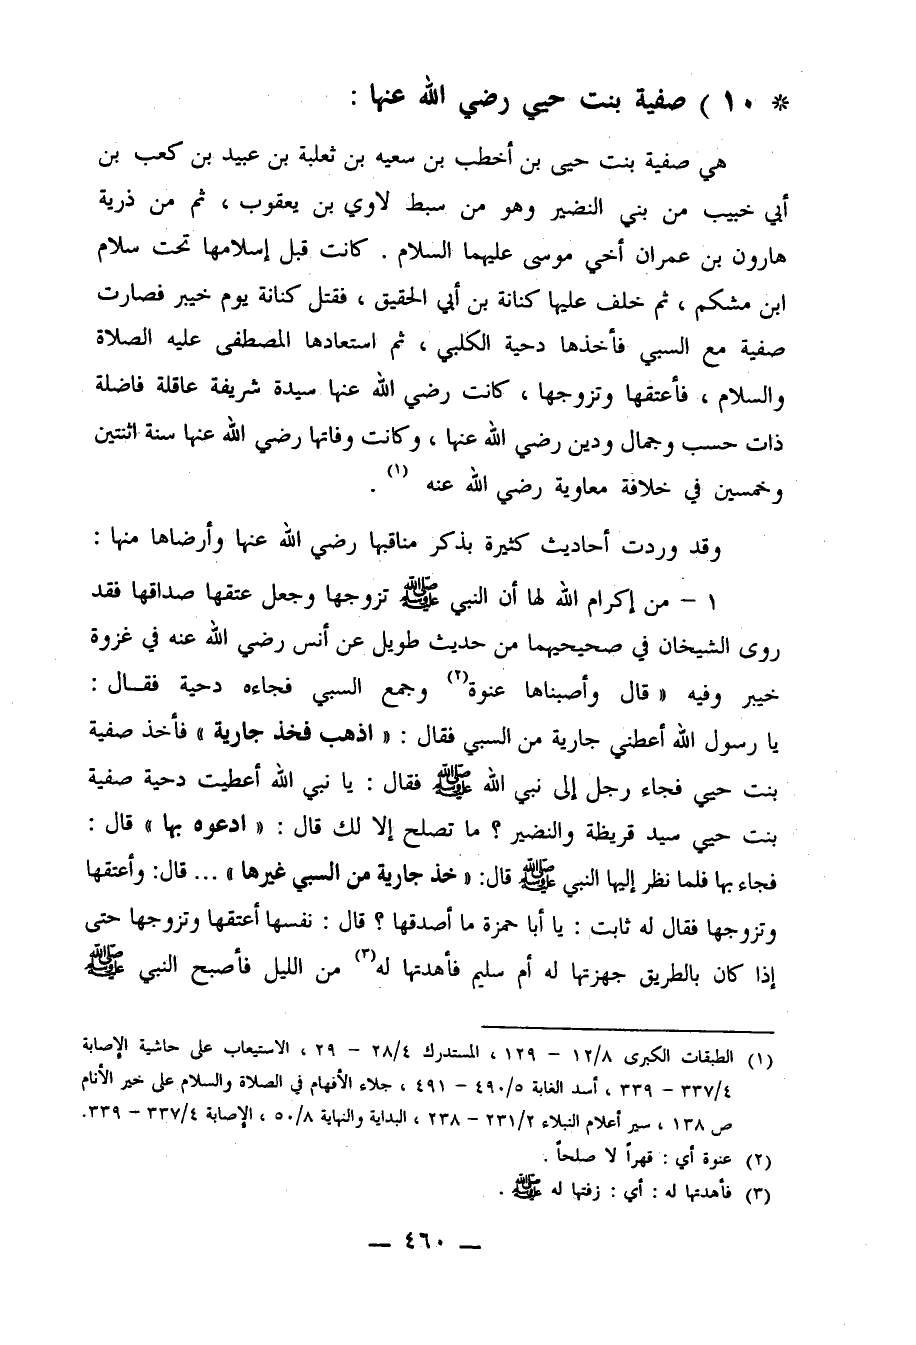 * ١٠ ) صفية بنت حيي رضي الله عنها :
هي صفية بنت حيى بن أخطب بن سعيه بن ثعلبة بن عبيد بن كعب بن
أبي خبيب من بني النضير وهو من سبط لاوي بن يعقوب ، ثم من ذرية
هارون بن عمران أخي موسى عليهما السلام . كانت قبل إسلامها تحت سلام
ابن مشكم ، ثم خلف عليها كنانة بن أبي الحقيق ، فقتل كنانة يوم خيبر فصارت
صفية مع السبي فأخذها دحية الكلبي ، ثم استعادها المصطفى عليه الصلاة
والسلام ، فأعتقها وتزوجها ، كانت رضي الله عنها سيدة شريفة عاقلة فاضلة
ذات حسب وجمال ودين رضي الله عنها ، وكانت وفاتها رضي الله عنها سنة اثنتين
وخمسين في خلافة معاوية رضي الله عنه (١) .
وقد وردت أحاديث كثيرة بذكر مناقبها رضي الله عنها وأرضاها منها :
١ – من إكرام الله لها أن النبي ﷺ تزوجها وجعل عتقها صداقها فقد
روى الشيخان في صحيحيهما من حديث طويل عن أنس رضي الله عنه في غزوة
خيبر وفيه « قال وأصبناها عنوة(٢) وجمع السبي فجاءه دحية فقـال :
يا رسول الله أعطني جارية من السبي فقال : « اذهب فخذ جارية » فأخذ صفية
بنت حيي فجاء رجل إلى نبي الله ﷺ فقال : يا نبي الله أعطيت دحية صفية
بنت حيي سيد قريظة والنضير ؟ ما تصلح إلا لك قال : « ادعوه بها » قال :
فجاء بها فلما نظر إليها النبي ﷺ قال: « خذ جارية من السبي غيرها » ... قال: وأعتقها
وتزوجها فقال له ثابت : يا أبا حمزة ما أصدقها ؟ قال : نفسها أعتقها وتزوجها حتى
إذا كان بالطريق جهزتها له أم سليم فأهدتها له(٣) من الليل فأصبح النبي ﷺ
(١) الطبقات الكبرى ١٢/٨ – ١٢٩ ، المستدرك ٢٨/٤ – ٢٩ ، الاستيعاب على حاشية الإصابة
٣٣٧/٤ – ٣٣٩ ، أسد الغابة ٤٩٠/٥ – ٤٩١ ، جلاء الأفهام في الصلاة والسلام على خير الأنام
ص ١٣٨ ، سير أعلام النبلاء ٢٣١/٢ – ٢٣٨ ، البداية والنهاية ٥٠/٨ ، الإصابة ٣٣٧/٤ – ٣٣٩.
(٢) عنوة أي : قهراً لا صلحاً .
(٣) فأهدتها له : أي : زفتها له ﷺ .
— ٤٦٠ —